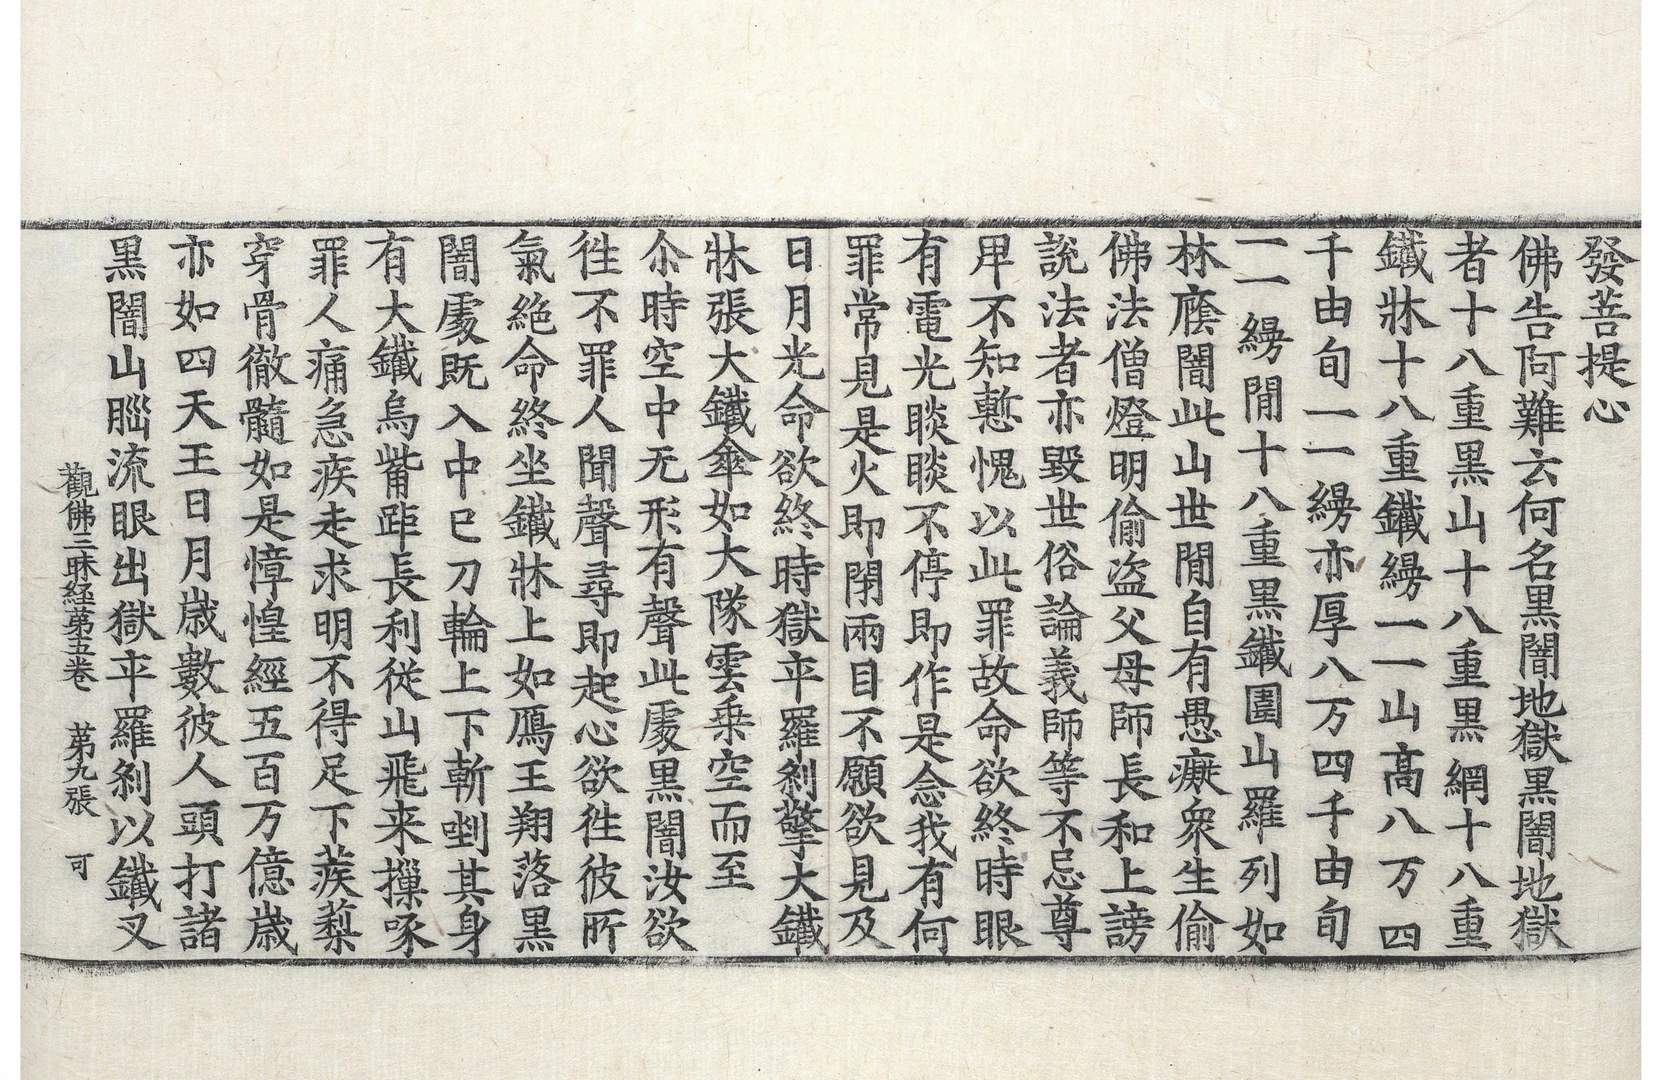 發菩提心
佛告阿難云何名黑闇地獄黑闇地獄
者十八重黑山十八重黑網十八重
鐵牀十八重鐵縵一一山高八万四
千由旬一一縵亦厚八万四千由旬
一一縵閒十八重黑鐵圍山羅列如
林䕃闇此山世閒自有愚癡衆生偷
佛法僧燈明偷盜父母師長和上謗
說法者亦毀世俗論義師等不忌尊
甲不知慙愧以此罪故命欲終時眼
有電光睒睒不停即作是念我有何
罪常見是火即閉兩目不願欲見及
日月光命欲終時獄卒羅剎擎大鐵
牀張大鐵傘如大隊雲乗空而至
尒時空中无形有聲此䖏黑闇汝欲
徃不罪人聞聲尋即起心欲徃彼所
氣絶命終坐鐵牀上如鴈王翔落黑
闇䖏既入中已刀輪上下斬剉其身
有大鐵烏觜距長利従山飛来摷啄
罪人痛急疾走求明不得足下蒺䔧
穿骨徹髓如是慞惶經五百万億歲
亦如四天王日月歲數彼人頭打諸
黑闇山腦流眼出獄卒羅剎以鐵叉
觀佛三昧経苐五卷　苐九張　可